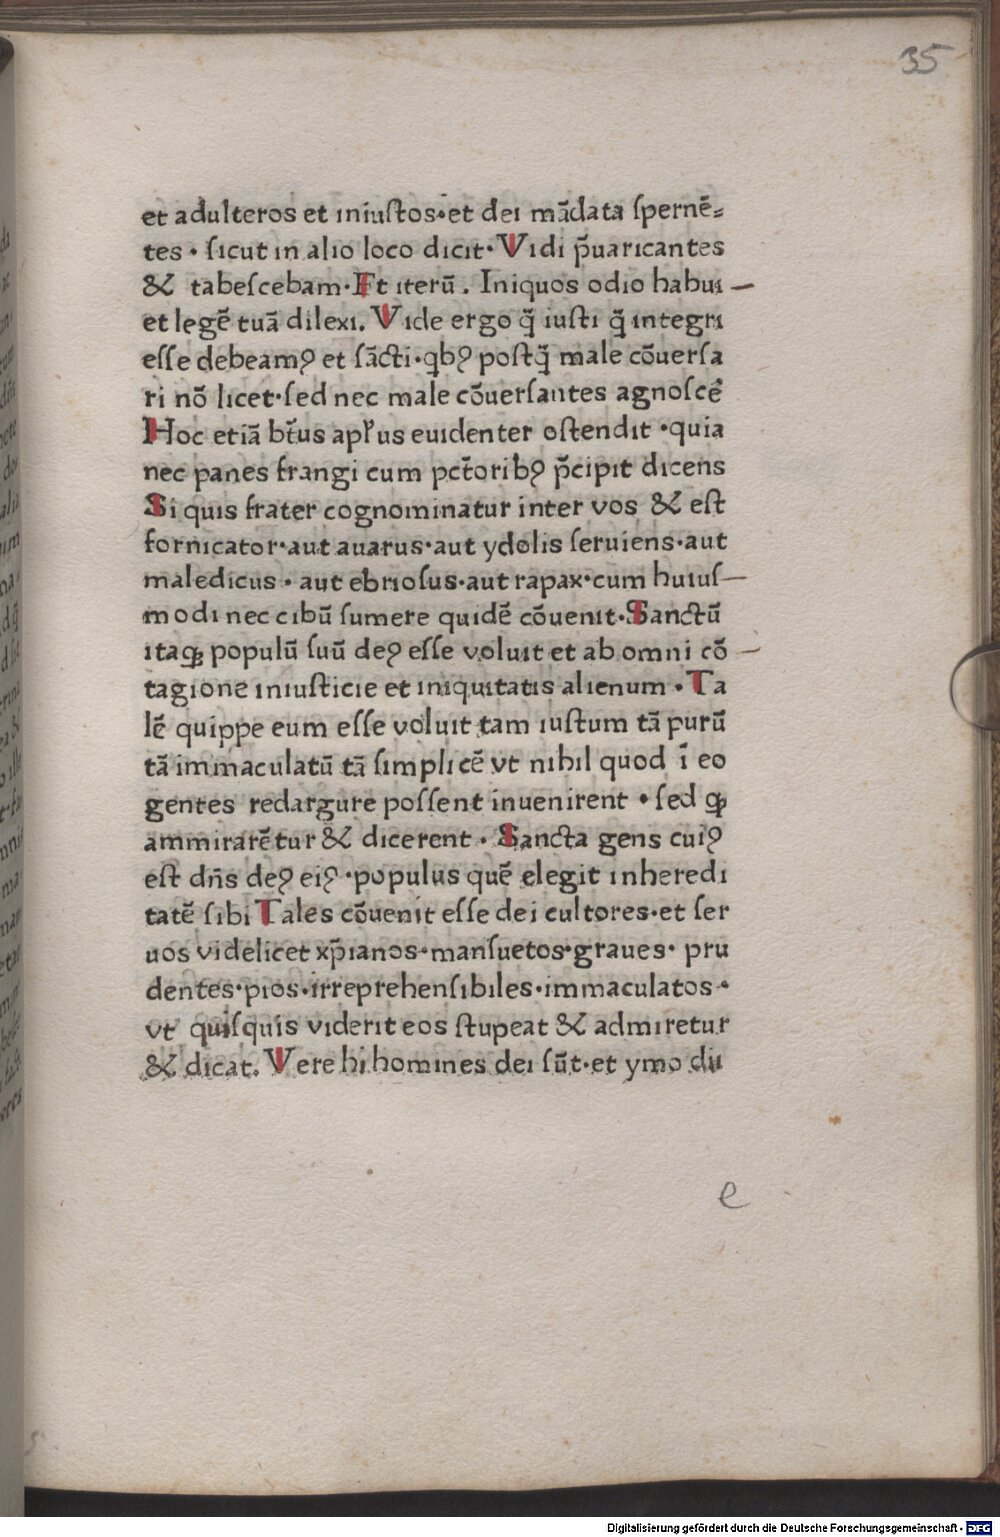 35
et adulteros et iniustos·et dei mādata spernē=
tes · sicut in alio loco dicit· Vidi p̄uaricantes
& tabescebam·Et iterū . Iniquos odio habui
et legē tuā dilexi. Vide ergo q̄ iusti q̄ integri
esse debeamꝰ et sācti·qbꝰ postq̄ male cōuersa
ri nō licet·sed nec male cōuersantes agnoscē
Hoc etiā bt̄us apl'us euidenter ostendit ·quia
nec panes frangi cum pct̄oribꝰ p̄cipit dicens
Si quis frater cognominatur inter vos & est
fornicator·aut auarus·aut ydolis seruiens·aut
maledicus · aut ebriosus·aut rapax·cum huius
modi nec cibū sumere quidē cōuenit·Sanctū
itaqꝫ populū suū deꝰ esse voluit et ab omni cō
tagione iniusticie et iniquitatis alienum · Ta
lē quippe eum esse voluit tam iustum tā purū
tā immaculatū tā simplicē vt nihil quod ī eo
gentes redargure possent inuenirent · sed qꝫ
ammirarētur & dicerent · Sancta gens cuiꝰ
est dn̄s deꝰ eiꝰ ·populus quē elegit inheredi
tatē sibi Tales cōuenit esse dei cultores·et ser
uos videlicet xp̄ianos·mansuetos·graues· pru
dentes·pios·irreprehensibiles·immaculatos·
vt quisquis viderit eos stupeat & admiretur
& dicat. Vere hi homines dei sūt·et ymo dii
e
Digitalisierung gefördert durch die Deutsche Forschungsgemeinschaft - DFG